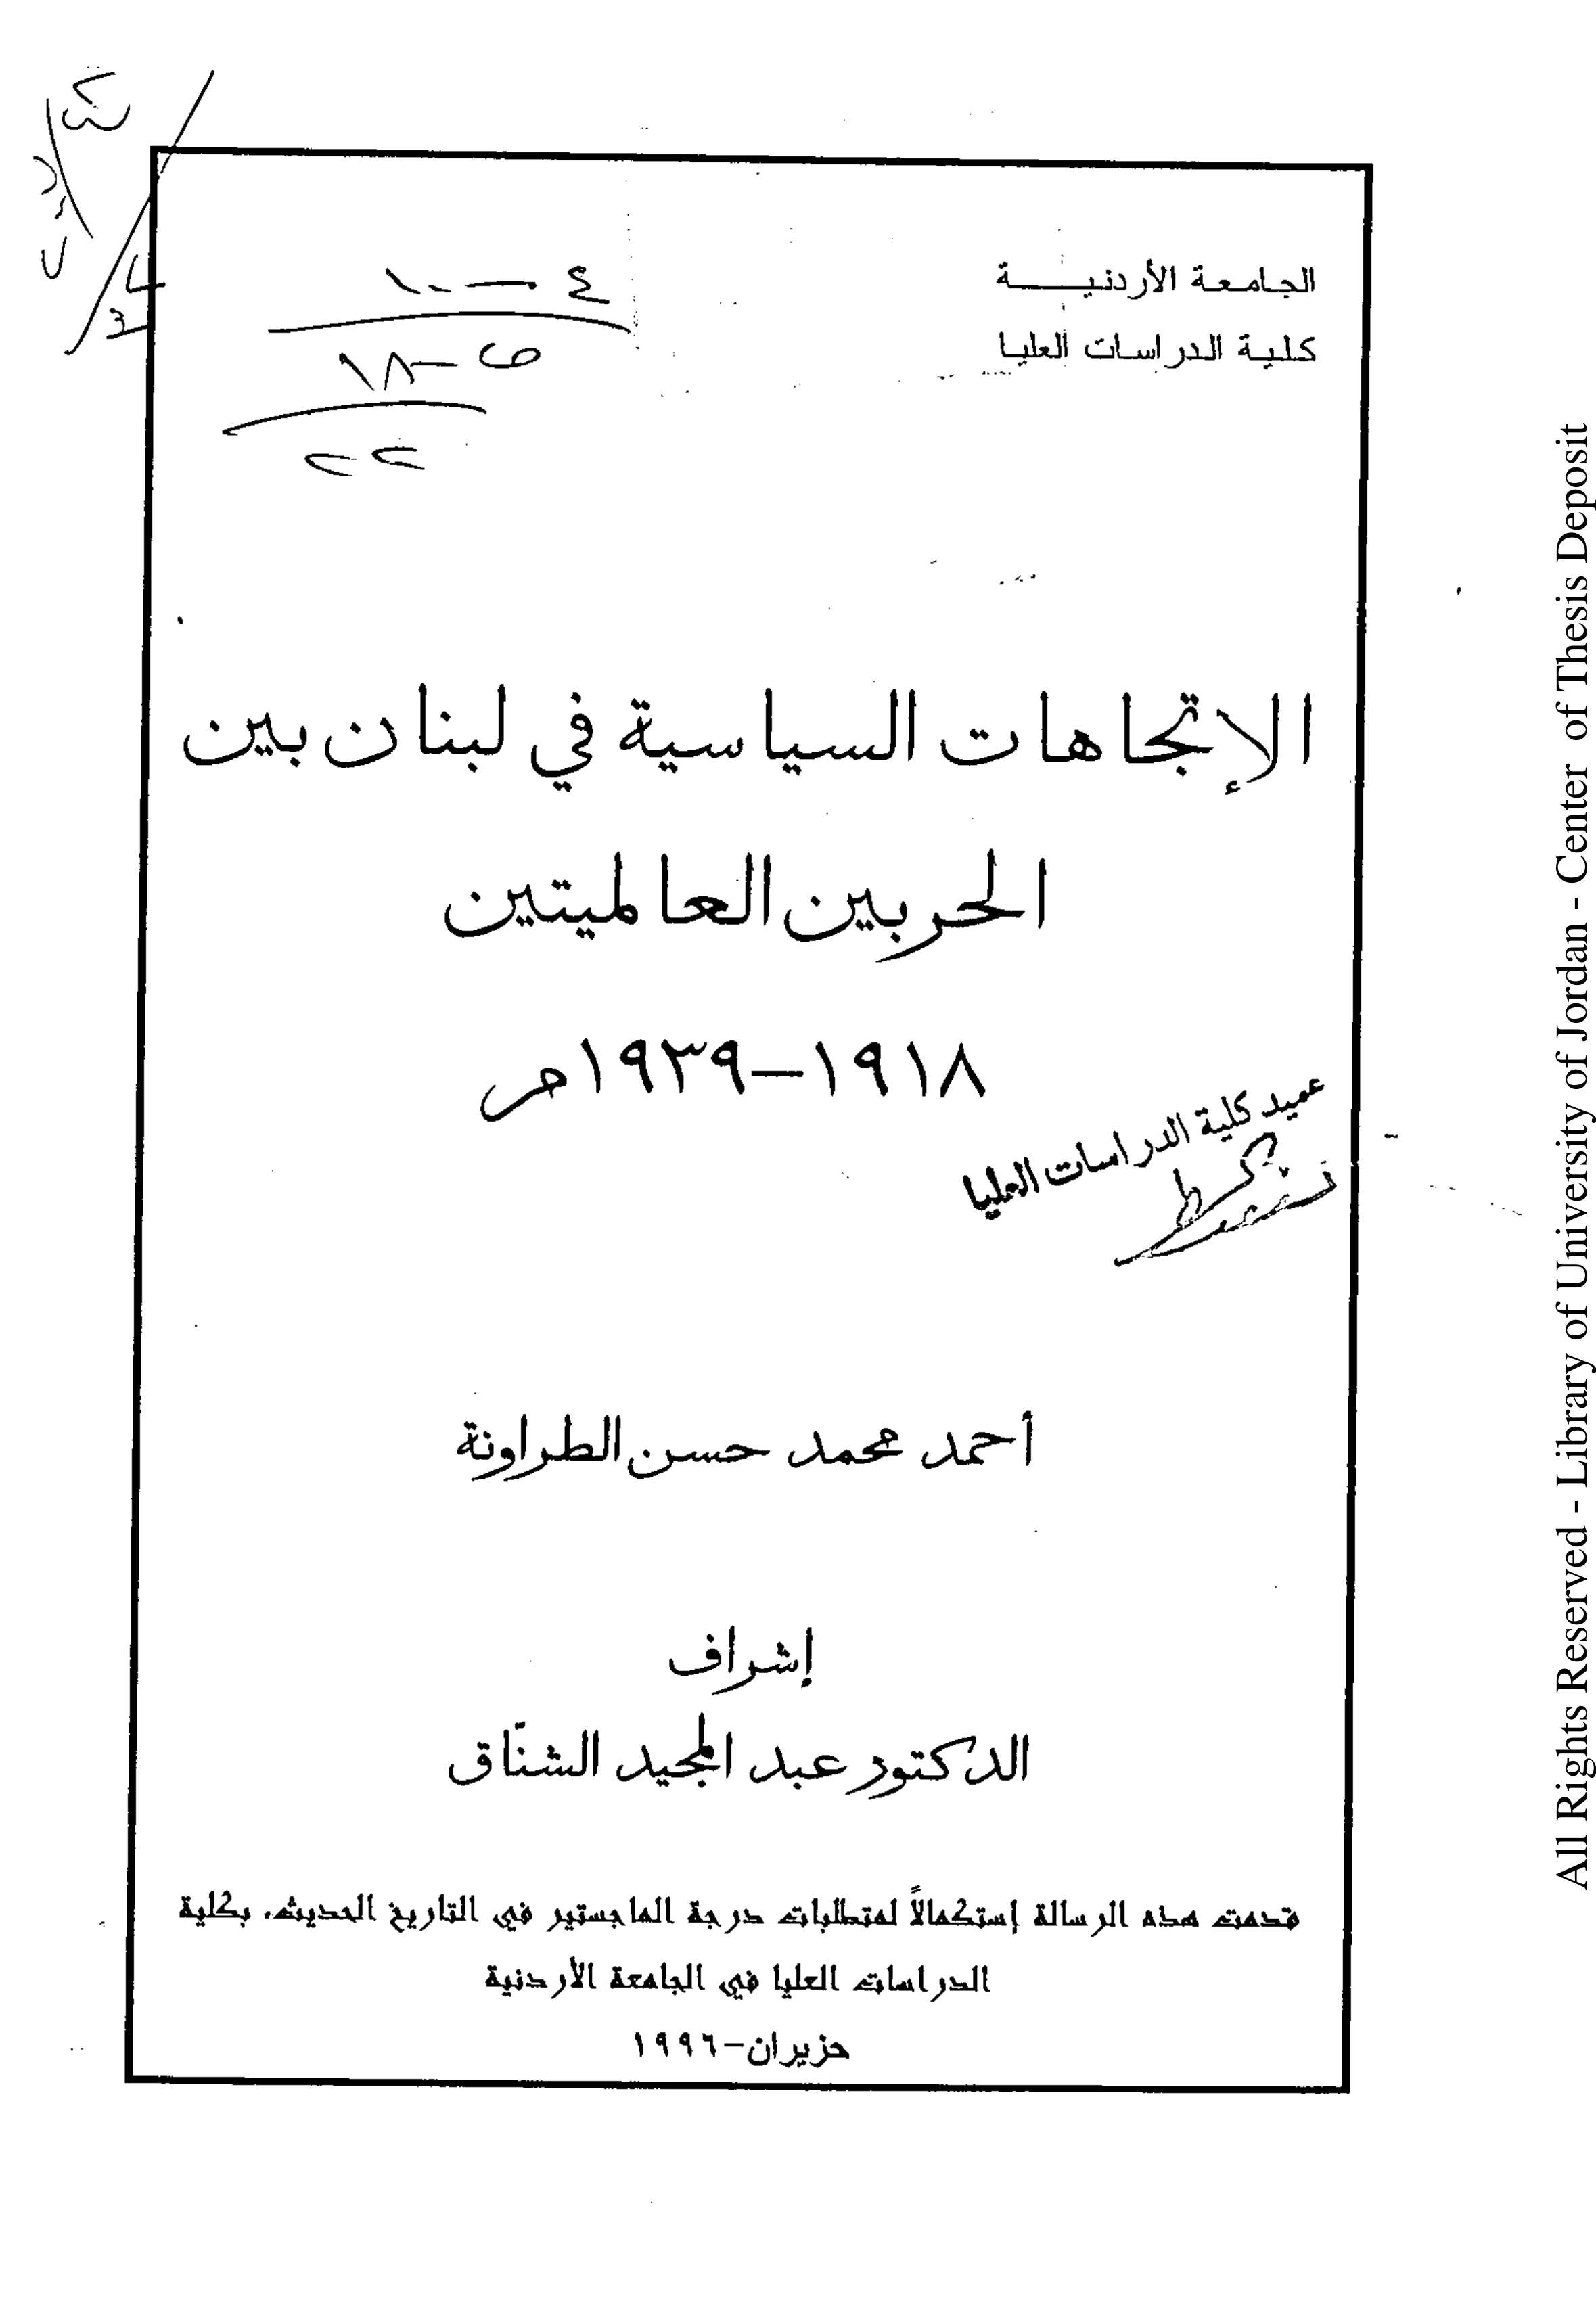 الجامعة الأردنيـــــة
كلية الدراسات العليا
الإتجاهات السياسية في لبنان بين
الحربين العالميتين
١٩١٨-١٩٣٩م
عميد كلية الدراسات العليا
أحمد محمد حسن الطراونة
إشراف
الدكتور عبد المجيد الشنّاق
قدمت هذه الرسالة إستكمالاً لمتطلبات درجة الماجستير في التاريخ الحديث، بكلية
الدراسات العليا في الجامعة الأردنية
حزيران-١٩٩٦
All Rights Reserved - Library of University of Jordan - Center of Thesis Deposit